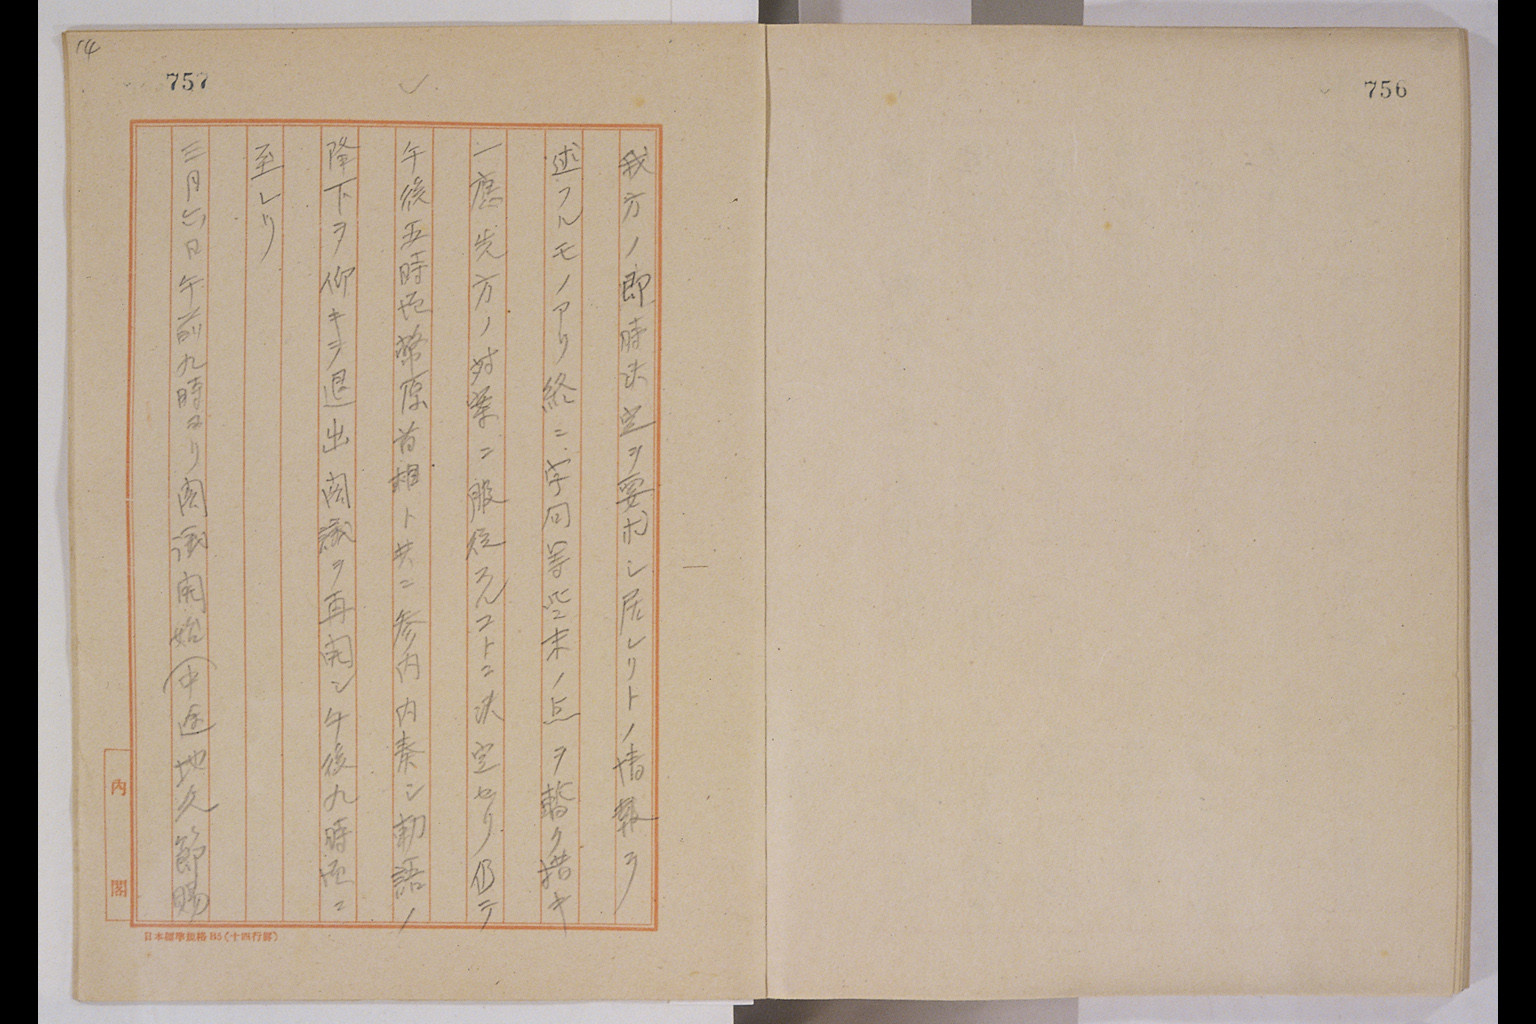 756
14
757
我方ノ即時決定ヲ要求シ居レリトノ情報ヲ
述フルモノアリ終ニ字句等些末ノ点ヲ暫ク措キ
一應先方ノ対案ニ服従スルコトニ決定セリ仍テ
午後五時 幣原首相ト共ニ参内内奏シ勅語ノ
降下ヲ仰キテ退出閣議ヲ再開シ午後九時 ニ
至レリ
三月六日午前九時ヨリ閣議開始(中途地久節賜
内閣
日本標準規格B5(十四行罫)